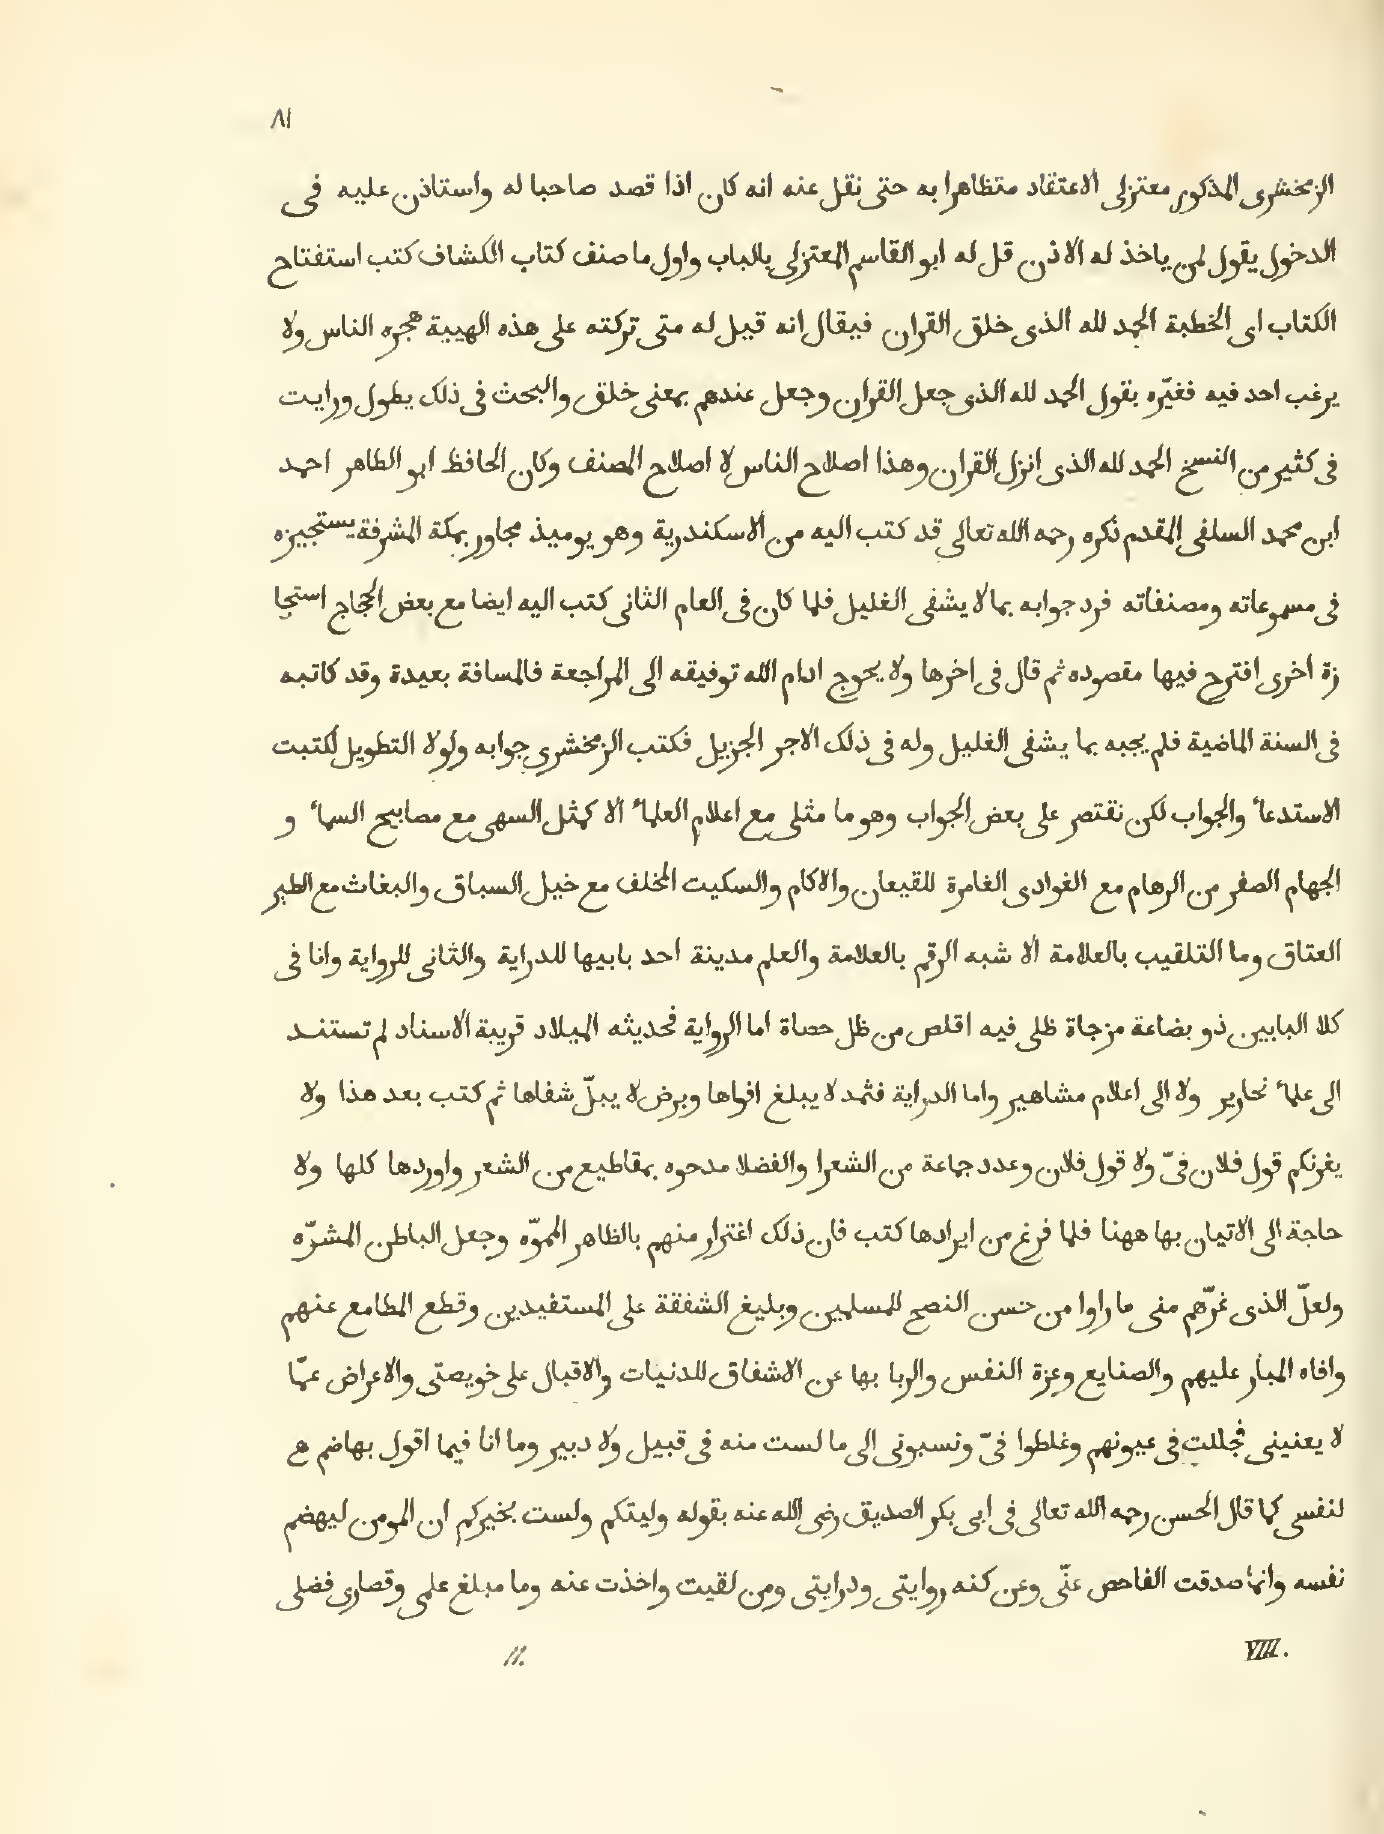 ٨١
الزمخشرى المذكور معتزلى الاعتقاد متظاهرا به حتى نقل عنه انه كان اذا قصد صاحبا له واستاذن عليه فى
الدخول يقول لمن ياخذ له الاذن قل له ابو القاسم المعتزلى بالباب واول ما صنف كتاب الكشاف كتب استفتاح
الكتاب اى الخطبة الحمد لله الذى خلق القران فيقال انه قيل له متى تركته على هذه الهيية هجره الناس ولا
يرغب احد فيه فغيّره بقول الحمد لله الذى جعل القران وجعل عندهم بمعنى خلق والبحث فى ذلك يطول ورايت
فى كثير من النسخ الحمد لله الذى انزل القران وهذا اصلاح الناس لا اصلاح المصنف وكان الحافظ ابو الطاهر احمد
ابن محمد السلفى المقدم ذكره رحمه الله تعالى قد كتب اليه من الاسكندرية وهو يوميذ مجاور بمكة المشرفة يستجيزه
فى مسموعاته ومصنفاته فرد جوابه بما لا يشفى الغليل فلما كان فى العام الثانى كتب اليه ايضا مع بعض الحجاج استجا
زة اخرى افترح فيها مقصوده ثم قال فى اخرها ولا يحوج ادام الله توفيقه الى المراجعة فالمسافة بعيدة وقد كاتبه
فى السنة الماضية فلم يجبه بما يشفى الغليل وله فى ذلك الاجر الجزيل فكتب الزمخشرى جوابه ولولا التطويل لكتبت
الاستدعاء والجواب لكن نقتصر على بعض الجواب وهو ما مثلى مع اعلام العلماء الا كمثل السهى مع مصابيح السماء و
الجهام الصفر من الرهام مع الغوادى الغامرة للقيعان والاكام والسكيت المخلف مع خيل السباق والبغاث مع الطير
العتاق وما التلقيب بالعلامة الا شبه الرقم بالعلامة والعلم مدينة احد بابيها للدراية والثانى للرواية وانا فى
كلا البابين ذو بضاعة مزجاة ظلى فيه اقلص من ظل حصاة اما الرواية فحديثه الميلاد قريبة الاسناد لم تستند
الى علماء نحارير ولا الى اعلام مشاهير واما الدراية فثمد لا يبلغ افواها وبرض لا يبلّ شفاها ثم كتب بعد هذا ولا
يغرنكم قول فلان فىّ ولا قول فلان وعدد جماعة من الشعرا والفضلا مدحوه بمقاطيع من الشعر واوردها كلها ولا
حاجة الى الاتيان بها ههنا فلما فرغ من ايرادها كتب فان ذلك اغترار منهم بالظاهر المموّه وجعل الباطن المشرّه
ولعلّ الذى غرّهم منى ما راوا من حسن النصح للمسلمين وبليغ الشفقة على المستفيدين وقطع المطامع عنهم
وافاه المبار عليهم والصنايع وعزة النفس والربا بها عن الاشفاق للدنيات والاقبال على خويصتى والاعراض عمّا
لا يعنينى فجللت فى عيونهم وغلطوا فىّ ونسبونى الى ما لست منه فى قبيل ولا دبير وما انا فيما اقول بهاضم ھ
لنفسى كما قال الحسن رحمه الله تعالى فى ابى بكر الصديق رضى الله عنه بقوله وليتكم ولست بخيركم ان المومن ليهضم
نفسه وانما صدقت الفاحص عنّى وعن كنه روايتى ودرايتى ومن لقيت واخذت عنه وما مبلغ علمى وقصارى فضلى
VIIII. 11.